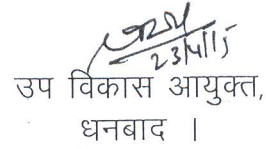 23/4/15
उप विकास आयुक्त,
धनबाद ।